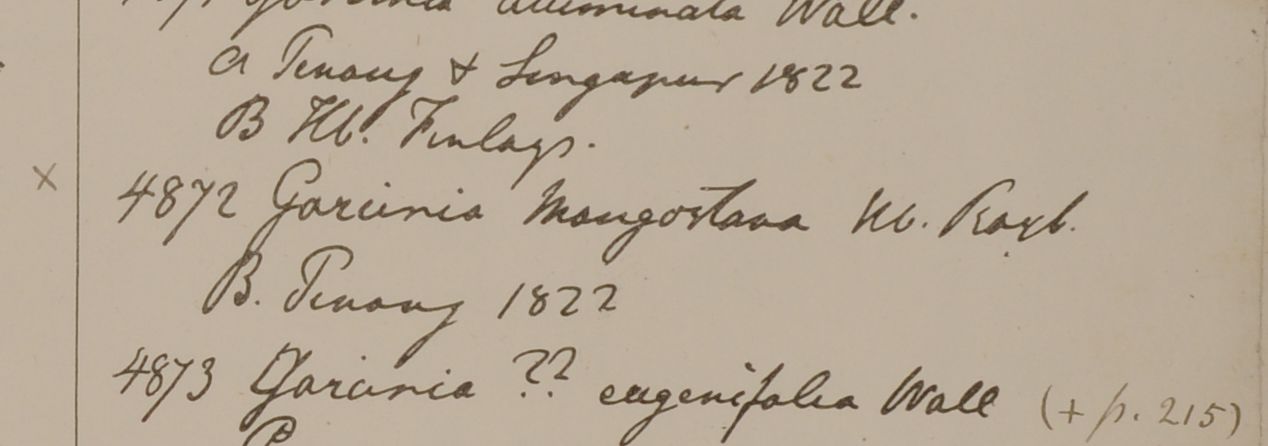 Garcinia acuminata Wall.
a Penang & Singapur 1822
B Hb. Finlays.
× 4872 Garcinia Mangostana Hb. Roxb.
B. Penang 1822
4873 Garcinia ?? eugenifolia Wall (+ p. 215)